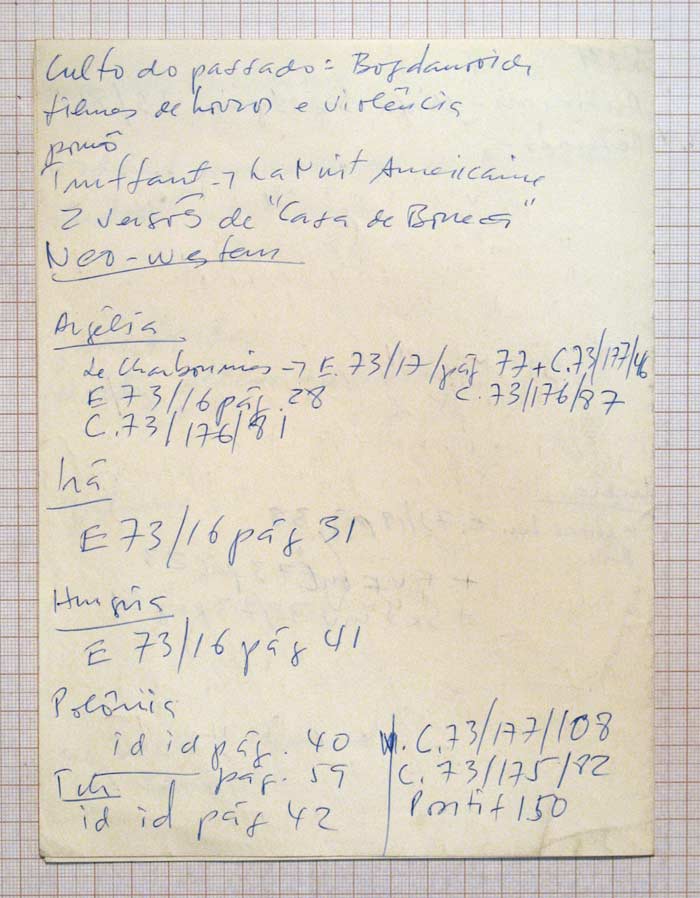 Culto do passado: Bogdanovich
filmes de horror e violência
pornô
Truffaut → La Nuit Americaine
2 versões de "Casa de Boneca"
Neo-western
Argélia
Le Charbonnier → E. 73/17/pág 77 + C.73/177/46
E 73/16 pág. 28 C. 73/176/87
C.73/176/81
Irã
E 73/16 pág 31
Hungria
E 73/16 pág 41
Polônia
id id pág. 40 C.73/177/108
pág. 59 C.73/175/82
Tch
id id pág 42 Positif 150